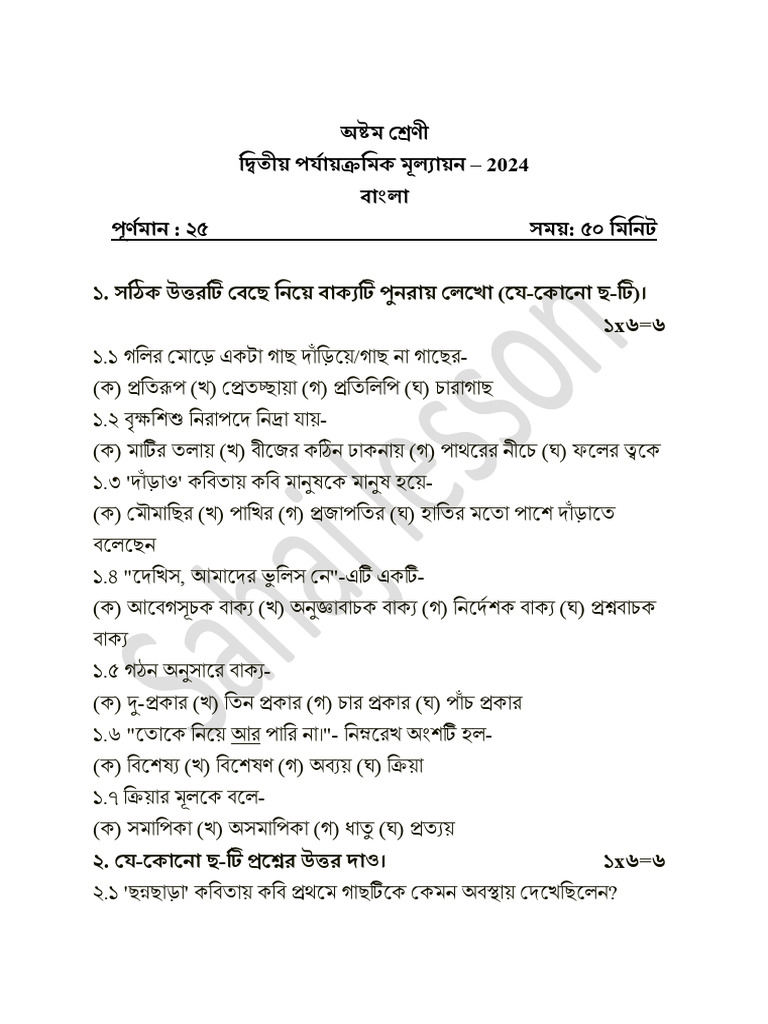 অষ্টম শ্রেণী
দ্বিতীয় পর্যায়ক্রমিক মূল্যায়ন – 2024
বাংলা
পূর্ণমান : ২৫ সময়: ৫০ মিনিট
১. সঠিক উত্তরটি বেছে নিয়ে বাক্যটি পুনরায় লেখো (যে-কোনো ছ-টি)।
১x৬=৬
১.১ গলির মোড়ে একটা গাছ দাঁড়িয়ে/গাছ না গাছের-
(ক) প্রতিরূপ (খ) প্রেতচ্ছায়া (গ) প্রতিলিপি (ঘ) চারাগাছ
১.২ বৃক্ষশিশু নিরাপদে নিদ্রা যায়-
(ক) মাটির তলায় (খ) বীজের কঠিন ঢাকনায় (গ) পাথরের নীচে (ঘ) ফলের ত্বকে
১.৩ 'দাঁড়াও' কবিতায় কবি মানুষকে মানুষ হয়ে-
(ক) মৌমাছির (খ) পাখির (গ) প্রজাপতির (ঘ) হাতির মতো পাশে দাঁড়াতে
বলেছেন
১.8 "দেখিস, আমাদের ভুলিস নে"-এটি একটি-
(ক) আবেগসূচক বাক্য (খ) অনুজ্ঞাবাচক বাক্য (গ) নির্দেশক বাক্য (ঘ) প্রশ্নবাচক
বাক্য
১.৫ গঠন অনুসারে বাক্য-
(ক) দু-প্রকার (খ) তিন প্রকার (গ) চার প্রকার (ঘ) পাঁচ প্রকার
১.৬ "তোকে নিয়ে আর পারি না।"- নিম্নরেখ অংশটি হল-
(ক) বিশেষ্য (খ) বিশেষণ (গ) অব্যয় (ঘ) ক্রিয়া
১.৭ ক্রিয়ার মূলকে বলে-
(ক) সমাপিকা (খ) অসমাপিকা (গ) ধাতু (ঘ) প্রত্যয়
২. যে-কোনো ছ-টি প্রশ্নের উত্তর দাও। ১x৬=৬
২.১ 'ছন্নছাড়া' কবিতায় কবি প্রথমে গাছটিকে কেমন অবস্থায় দেখেছিলেন?
Sahaj lesson